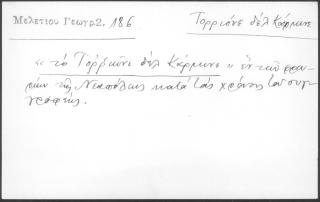 Μελετίου Γεωγρ2. 186
Τορριόνε δέλ Κάρμινε
« τὸ Τορριόνε δέλ Κάρμινε » ἐν
τῆς Νεαπόλεως κατὰ τοὺς χρόνους τοῦ συγ-
γραφέως.